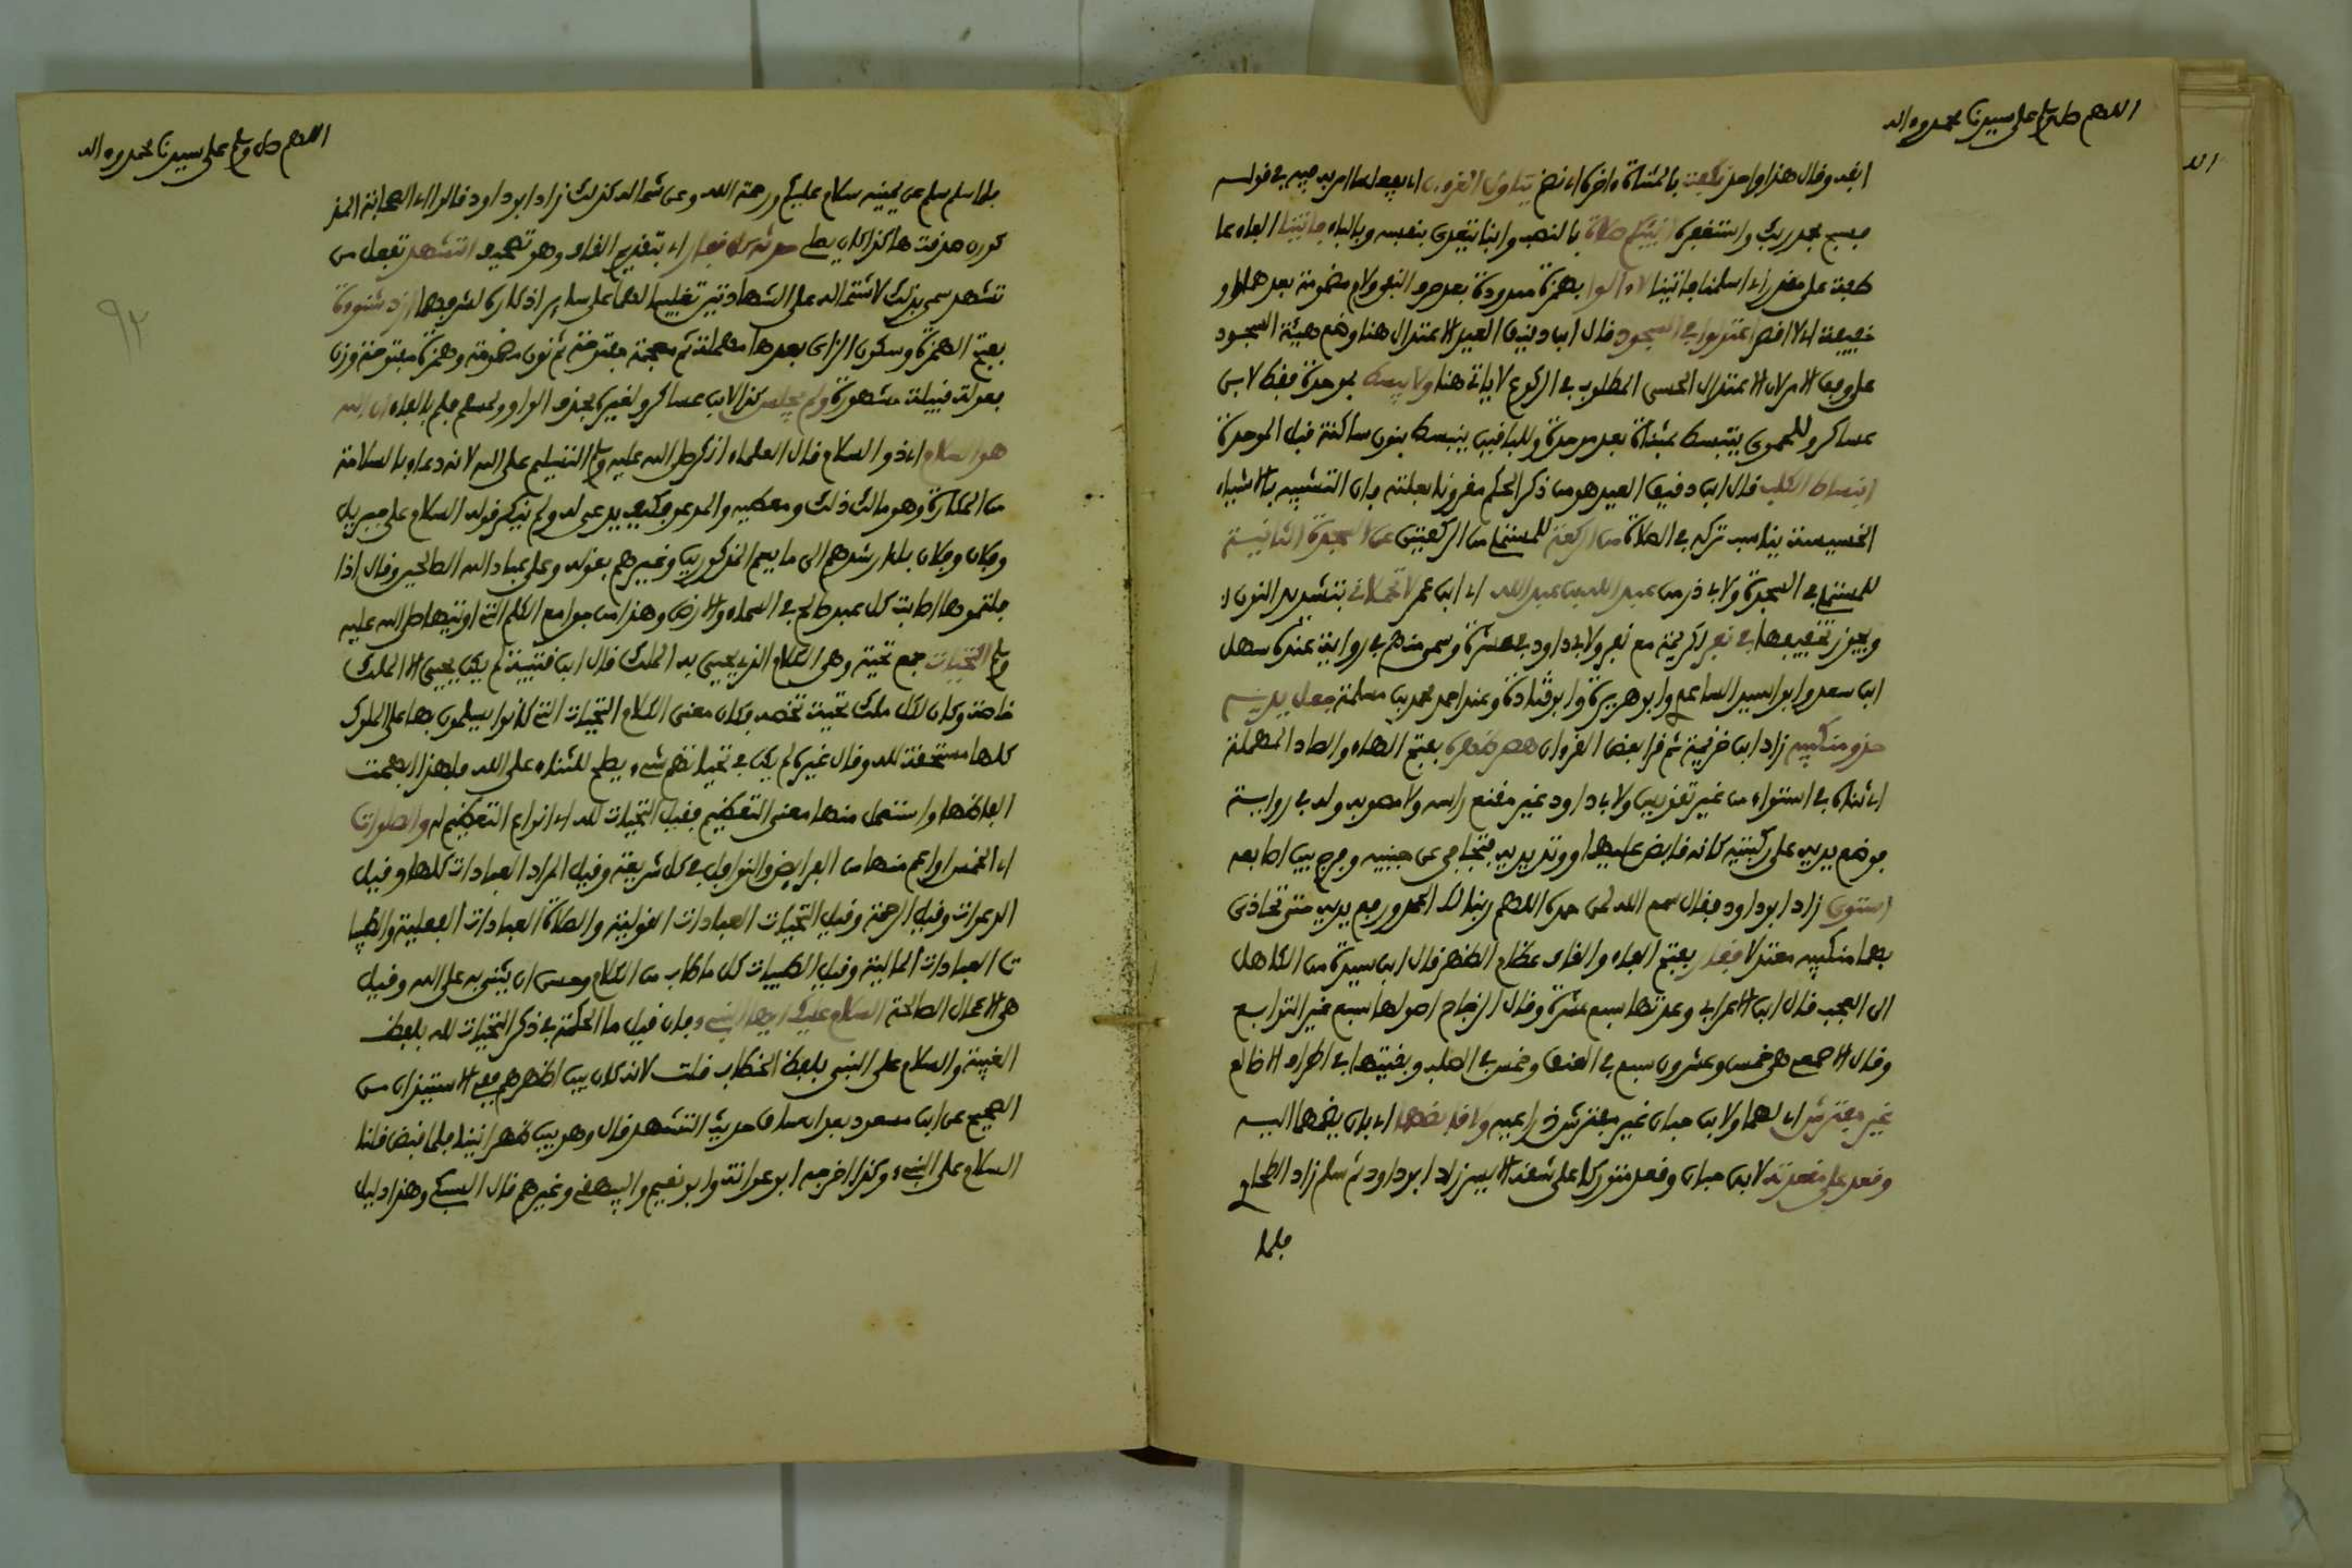 اللهم صل وسلم على سيدنا محمد وءاله
انفد وقال هذا واحد تكبعت بالمثناة ءاخره اي نهم يتأول القرءان اي يفعل ما امر به فيه في قوله
فسبح بحمد ربك واستغفره انبئكم صلاة بالنصب وانبا يتعدى بنفسه وبالباء فاتينا الفاء عا
طفة على مقدر اي اسلمنا فاتينا لا ءالوا بهمزة ممدودة بعد حرف النفي ولام مضمومة بعدها واو
خفيفة اي لا اقصر اعتدلوا في السجود قال ابن دقيق العيد الاعتدال هنا وضع هيئة السجود
على وفق الامر لان الاعتدال الحسي المطلوب في الركوع لا ياتي هنا ولا يبسط بموحدة فقط لابن
عساكر وللحموي يبتسط بمثناة بعد موحدة وللباقين ينبسط بنون ساكنة قبل الموحدة
انبساط الكلب قال ابن دقيق العيد هو من ذكر الحكم مقرونا بعلته فان التشبيه بالاشياء
الخسيسة يناسب تركه في الصلاة من الركعة للمستملي من الركعتين عن السجدة الثانية
للمستملي في السجدة ولابي ذر من عبد الله بن عبد الله اي ابن عمر لا تحملاني بتشديد النون
ويجوز تخفيفها في نفر لكريمة مع نفر ولابي داود في عشرة وسمى منهم في رواية عنده سهل
ابن سعد وابو اسيد الساعدي وابو هريرة وابو قتادة وعند احمد محمد بن مسلمة جعل يديه
حذو منكبيه زاد ابن خزيمة ثم قرا بعض القرءان هصر ظهره بفتح الهاء والصاد المهملة
اي ثناه في استواء من غير تقويس ولابي داود غير مقنع راسه ولا مصوبه وله في رواية
فوضع يديه على ركبتيه كانه قابض عليهما ووتر يديه فتجافى عن جنبيه وفرج بين اصابعه
استوى زاد ابو داود فقال سمع الله لمن حمده اللهم ربنا لك الحمد ورفع يديه حتى تحاذي
بهما منكبيه معتدلا فقار بفتح الفاء والقاف عظام الظهر قال ابن سيدة من الكاهل
الى العجب قال ابن الاعرابي وعدتها سبع عشرة وقال الزجاج اصولها سبع غير التوابع
وقال الاصمعي هي خمس وعشرون سبع في العنق وخمس في الصلب وبقيتها في اطراف الاضالع
غير مفترش اي لهما ولابن حبان غير مفترش ذراعيه ولا قابضهما اي بان يضمهما اليه
وقعد على مقعدته لابن حبان وقعد متوركا على شقه الايسر زاد ابو داود ثم سلم زاد الطحاوي
فلما
اللهم صل وسلم على سيدنا محمد وءاله
فلما سلم سلم عن يمينه سلام عليكم ورحمة الله وعن شماله كذلك زاد ابو داود قالوا اي الصحابة المذ
كورن صدقت هاكذا كان يصلي حدثه كل فقار اي بتقديم القاف وهو تصحيف التشهد تفعل من
تشهد سمي بذلك لاشتماله على الشهادتين تغليبا لهما على ساير اذكاره لشرفهما ازد شنوءة
بفتح الهمزة وسكون الزاى بعدها مهملة ثم معجمة مفتوحة ثم نون مضمومة وهمزة مفتوحة وزن
فعولة قبيلة مشهورة ولم يجلس كذا لابن عساكر ولغيره بحذف الواو ولمسلم فلم بالفاء ان الله
هو السلام اي ذو السلام قال العلماء انكر صلى الله عليه وسلم التسليم على الله لانه دعاء بالسلامة
من المكاره وهو مالك ذلك ومعطيه والمدعو فكيف يدعى له ولم ينكر قوله السلام على جبريل
وفلان وفلان بل ارشدهم الى ما يعم المذكورين وغيرهم بقوله وعلى عباد الله الصالحين وقال اذا
قلتموها اصابت كل عبد صالح في السماء والارض وهذا من جوامع الكلم التي اوتيها صلى الله عليه
وسلم التحيات جمع تحية وهي الكلام الذي يحيى به الملك قال ابن قتيبة لم يكن يحيى الا الملك
خاصة وكان لكل ملك تحية تخصه فكان معنى الكلام التحيات التي كانوا يسلمون بها على الملوك
كلها مستحقة لله وقال غيره لم يكن في تحياتهم شيء يصلح للثناء على الله فلهذا ابهمت
الفاظها واستعمل منها معنى التعظيم فقيل التحيات لله اي انواع التعظيم له والصلوات
اي الخمس او اعم منها من الفرايض والنوافل في كل شريعة وقيل المراد العبادات كلها وقيل
الدعوات وقيل الرحمة وقيل التحيات العبادات القولية والصلاة العبادات الفعلية والطيبا
ت العبادات المالية وقيل الطيبات كل ما طاب من الكلام وحسن ان يثنى به على الله وقيل
هي الاعمال الصالحة السلام عليك ايها النبيء فان قيل ما الحكمة في ذكر التحيات لله بلفظ
الغيبة والسلام على النبي بلفظ الخطاب قلت لانه كان بين اظهرهم ففي الاستيذان من
الصحيح عن ابن مسعود بعد ان ساق حديث التشهد قال وهو بين ظهرانينا فلما قبض قلنا
السلام على النبيء وكذا اخرجه ابو عوانة وابو نعيم والبيهقي وغيرهم قال السبكي وهذا دليل
٩٢